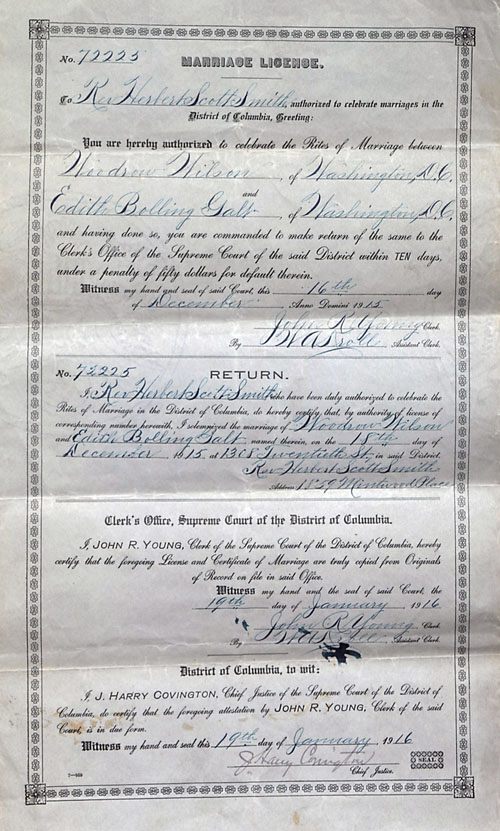 No. 72225
MARRIAGE LICENSE.
To Rev Herbert Scott Smith, authorized to celebrate marriages in the
District of Columbia, Greeting:
You are hereby authorized to celebrate the Rites of Marriage between
Woodrow Wilson, of Washington, D.C.
and
Edith Bolling Galt, of Washington, D.C.
and having done so, you are commanded to make return of the same to the
Clerk's Office of the Supreme Court of the said District within TEN days,
under a penalty of fifty dollars for default therein.
Witness my hand and seal of said Court, this 16th day
of December Anno Domini 1915
John R. Young Clerk.
By Assistant Clerk.
No. 72225 RETURN.
I, Rev Herbert Scott Smith who have been duly authorized to celebrate the
Rites of Marriage in the District of Columbia, do hereby certify that, by authority of license of
corresponding number herewith, I solemnized the marriage of Woodrow Wilson
and Edith Bolling Galt named therein, on the 18th day of
December 1915 at 1308 Twentieth St, in said District.
Rev Herbert Scott Smith
Address 1829 Place
Clerk's Office, Supreme Court of the District of Columbia.
I, JOHN R. YOUNG, Clerk of the Supreme Court of the District of Columbia, hereby
certify that the foregoing License and Certificate of Marriage are truly copied from Originals
of Record on file in said Office.
Witness my hand and the seal of said Court, the
19th day of January 1916
John R. Young Clerk
By Assistant Clerk
District of Columbia, to wit:
I J. HARRY COVINGTON, Chief Justice of the Supreme Court of the District of
Columbia, do certify that the foregoing attestation by JOHN R. YOUNG, Clerk of the said
Court, is in due form.
Witness my hand and seal this 19th day of January 1916
J. Harry Covington
SEAL
Chief Justice.